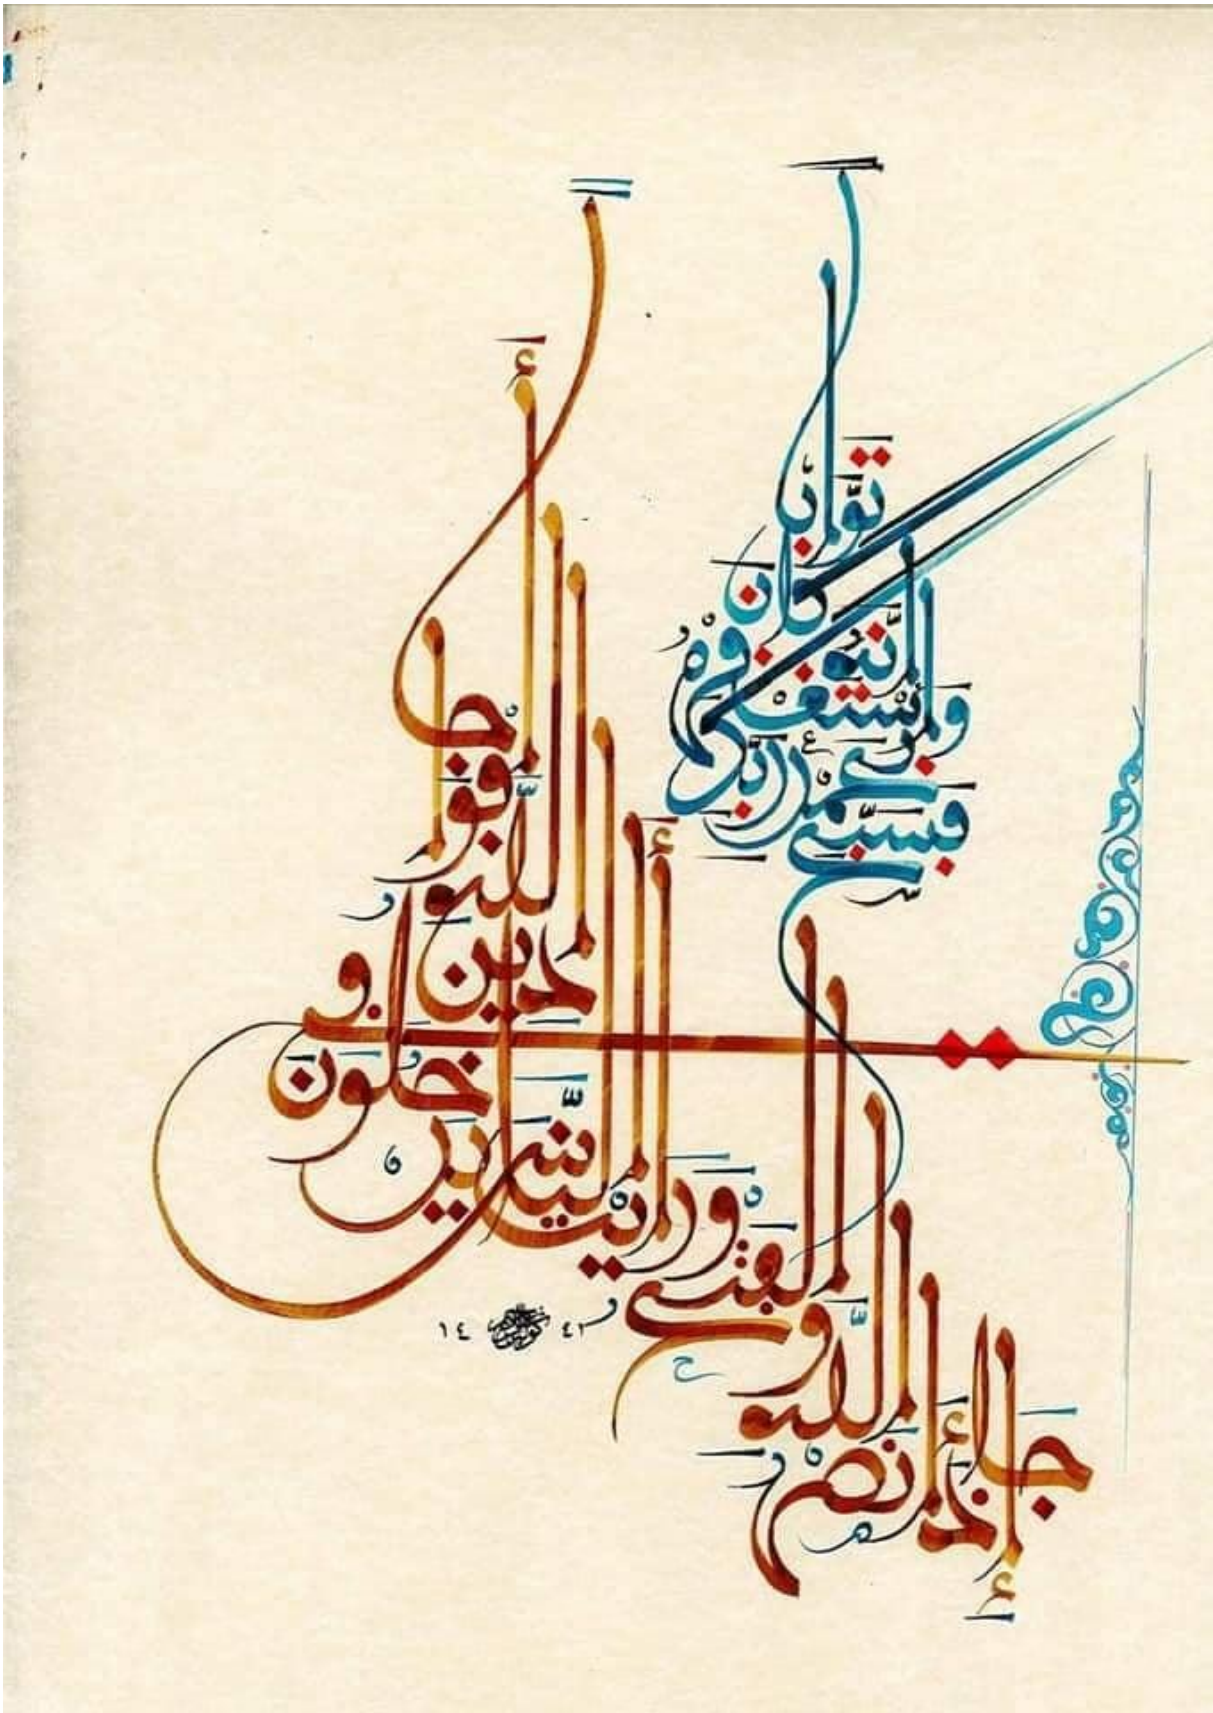 إِذَا جَاءَ نَصْرُ اللَّهِ وَالْفَتْحُ
وَرَأَيْتَ النَّاسَ يَدْخُلُونَ فِي
دِينِ اللَّهِ أَفْوَاجًا
فَسَبِّحْ بِحَمْدِ رَبِّكَ
وَاسْتَغْفِرْهُ إِنَّهُ
كَانَ تَوَّابًا